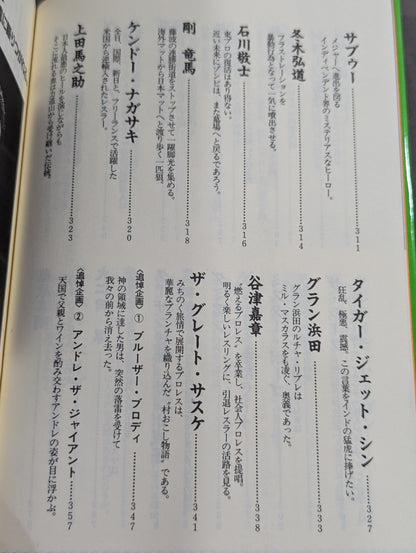 サブゥー
メジャーへ進出を図る
インディペンデント界のミステリアスなヒーロー。
311
冬木弘道
フラストレーションを
暴動行為となって一気に噴出させる。
314
石川敬士
東プロの復活はあり得ない。
近い未来にゾンビは、また墓場へと戻るであろう。
316
剛 竜馬
難波の連勝街道をストップさせて一躍脚光を集める。
海外マットから日本マットへと渡り歩く一匹狼。
318
ケンドー・ナガサキ
全日、国際、新日と、フリーランスで活躍した
米国から逆輸入されたレスラー。
320
上田馬之助
日本人最悪のヒールを演じながらも
そこに流れる血は力道山から受け継いだ伝統。
323
タイガー・ジェット・シン
狂乱、極悪、震撼、この言葉をインドの猛虎に捧げたい。
327
グラン浜田
グラン浜田のルチャ・リブレは
ミル・マスカラスをも凌ぐ、奥義であった。
333
谷津嘉章
“燃えるプロレス”を卒業し、社会人プロレスを提唱。
明るく楽しいレスリングに、引退レスラーの活路を見る。
338
ザ・グレート・サスケ
みちのく旅情で展開するプロレスは、
華麗なプランチャを織り込んだ“村おこし物語”である。
341
〈追悼企画〉① ブルーザー・ブロディ
神の領域に達した男は、突然の落雷を受けて
我々の前から消え去った。
347
〈追悼企画〉② アンドレ・ザ・ジャイアント
天国で父親とワインを酌み交わすアンドレの姿が目に浮かぶ。
357